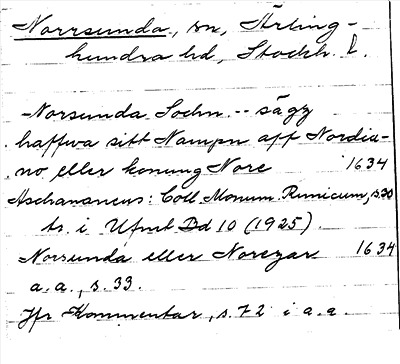 Norrsunda, sn, Ärling-
hundra hd, Stockh. l.
Norsunda Sochn -- sägz
haffwa sitt Nampn aff Nordia-
no eller konung Nore 1634
Aschananeus: Coll. Monum. Runicum, s. 30
ts. i Ufmt Bd 10 (1925).
Norsunda eller Norezar 1634
a.a., s. 33.
Jfr Kommentar, s. 72 i a.a.